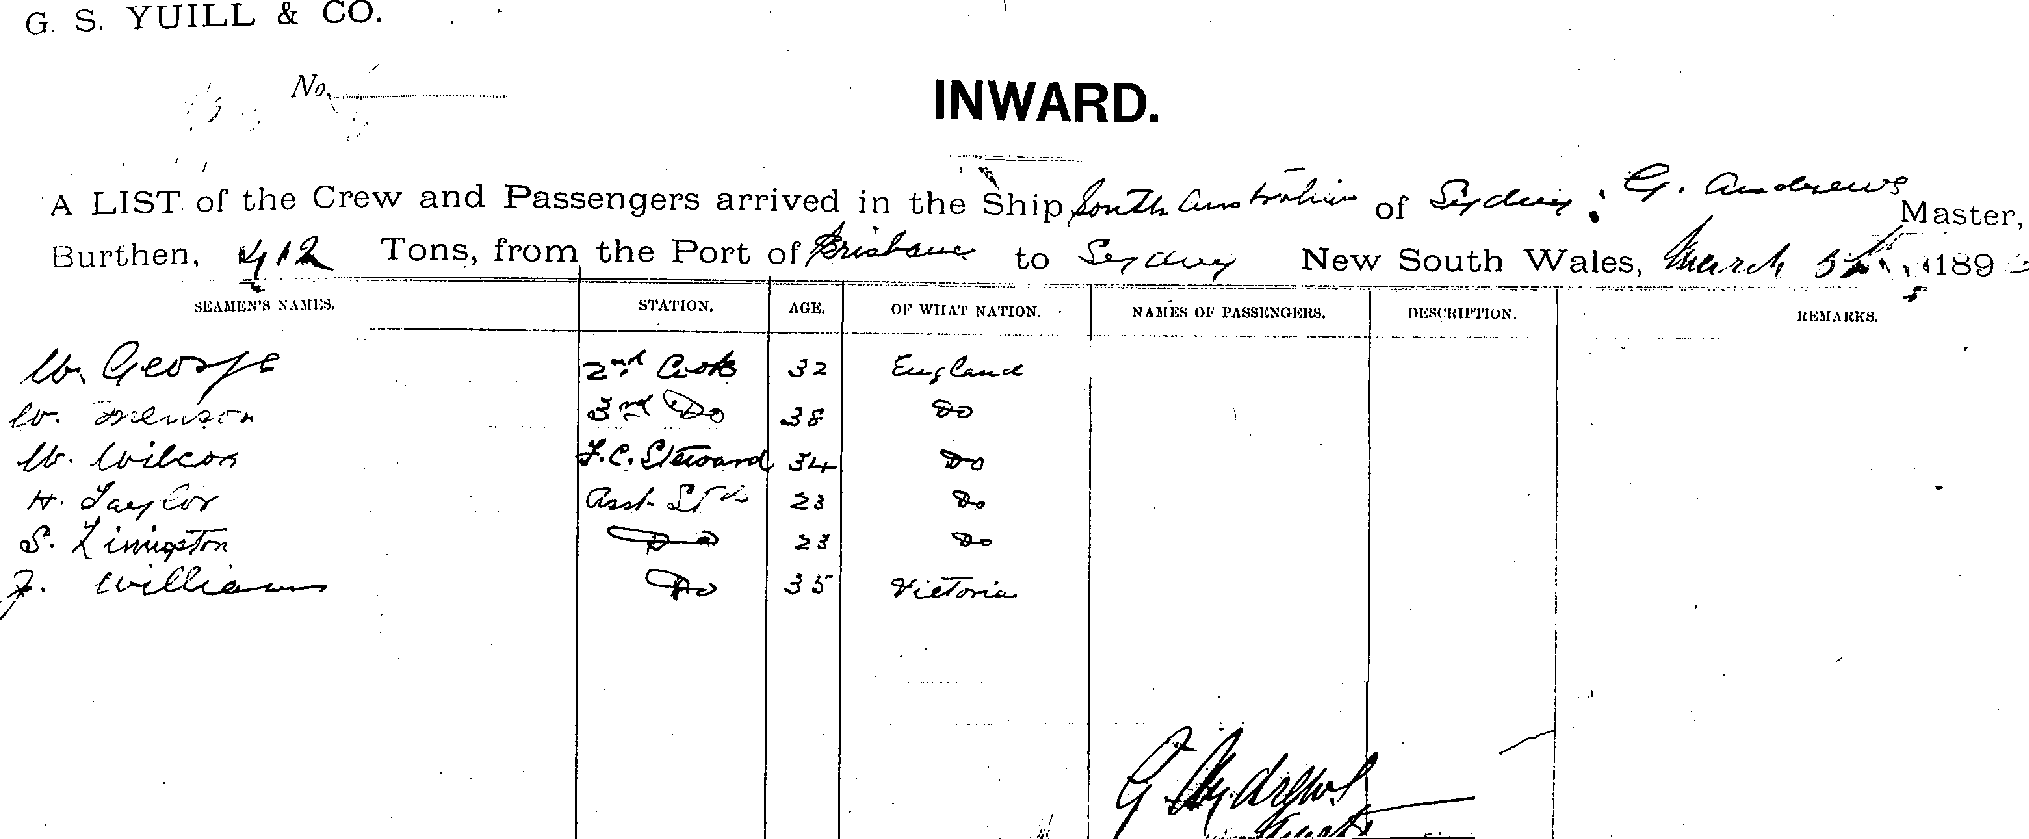 G. S. YUILL & CO.
No.
INWARD.
A LIST of the Crew and Passengers arrived in the Ship South Australian of Sydney: G. Andrews Master,
Burthen, 412 Tons, from the Port of Brisbane to Sydney New South Wales, March 189
SEAMEN'S NAMES. STATION. AGE. OF WHAT NATION. NAMES OF PASSENGERS. DESCRIPTION. REMARKS.
W. George 2nd Cook 32 England
W. 3rd Do 38 Do
W. Wilcox F.C. Steward 34 Do
H. Taylor Asst. Std 23 Do
S. Livingston Do 23 Do
J. Williams Do 35 Victoria
G. Andrews